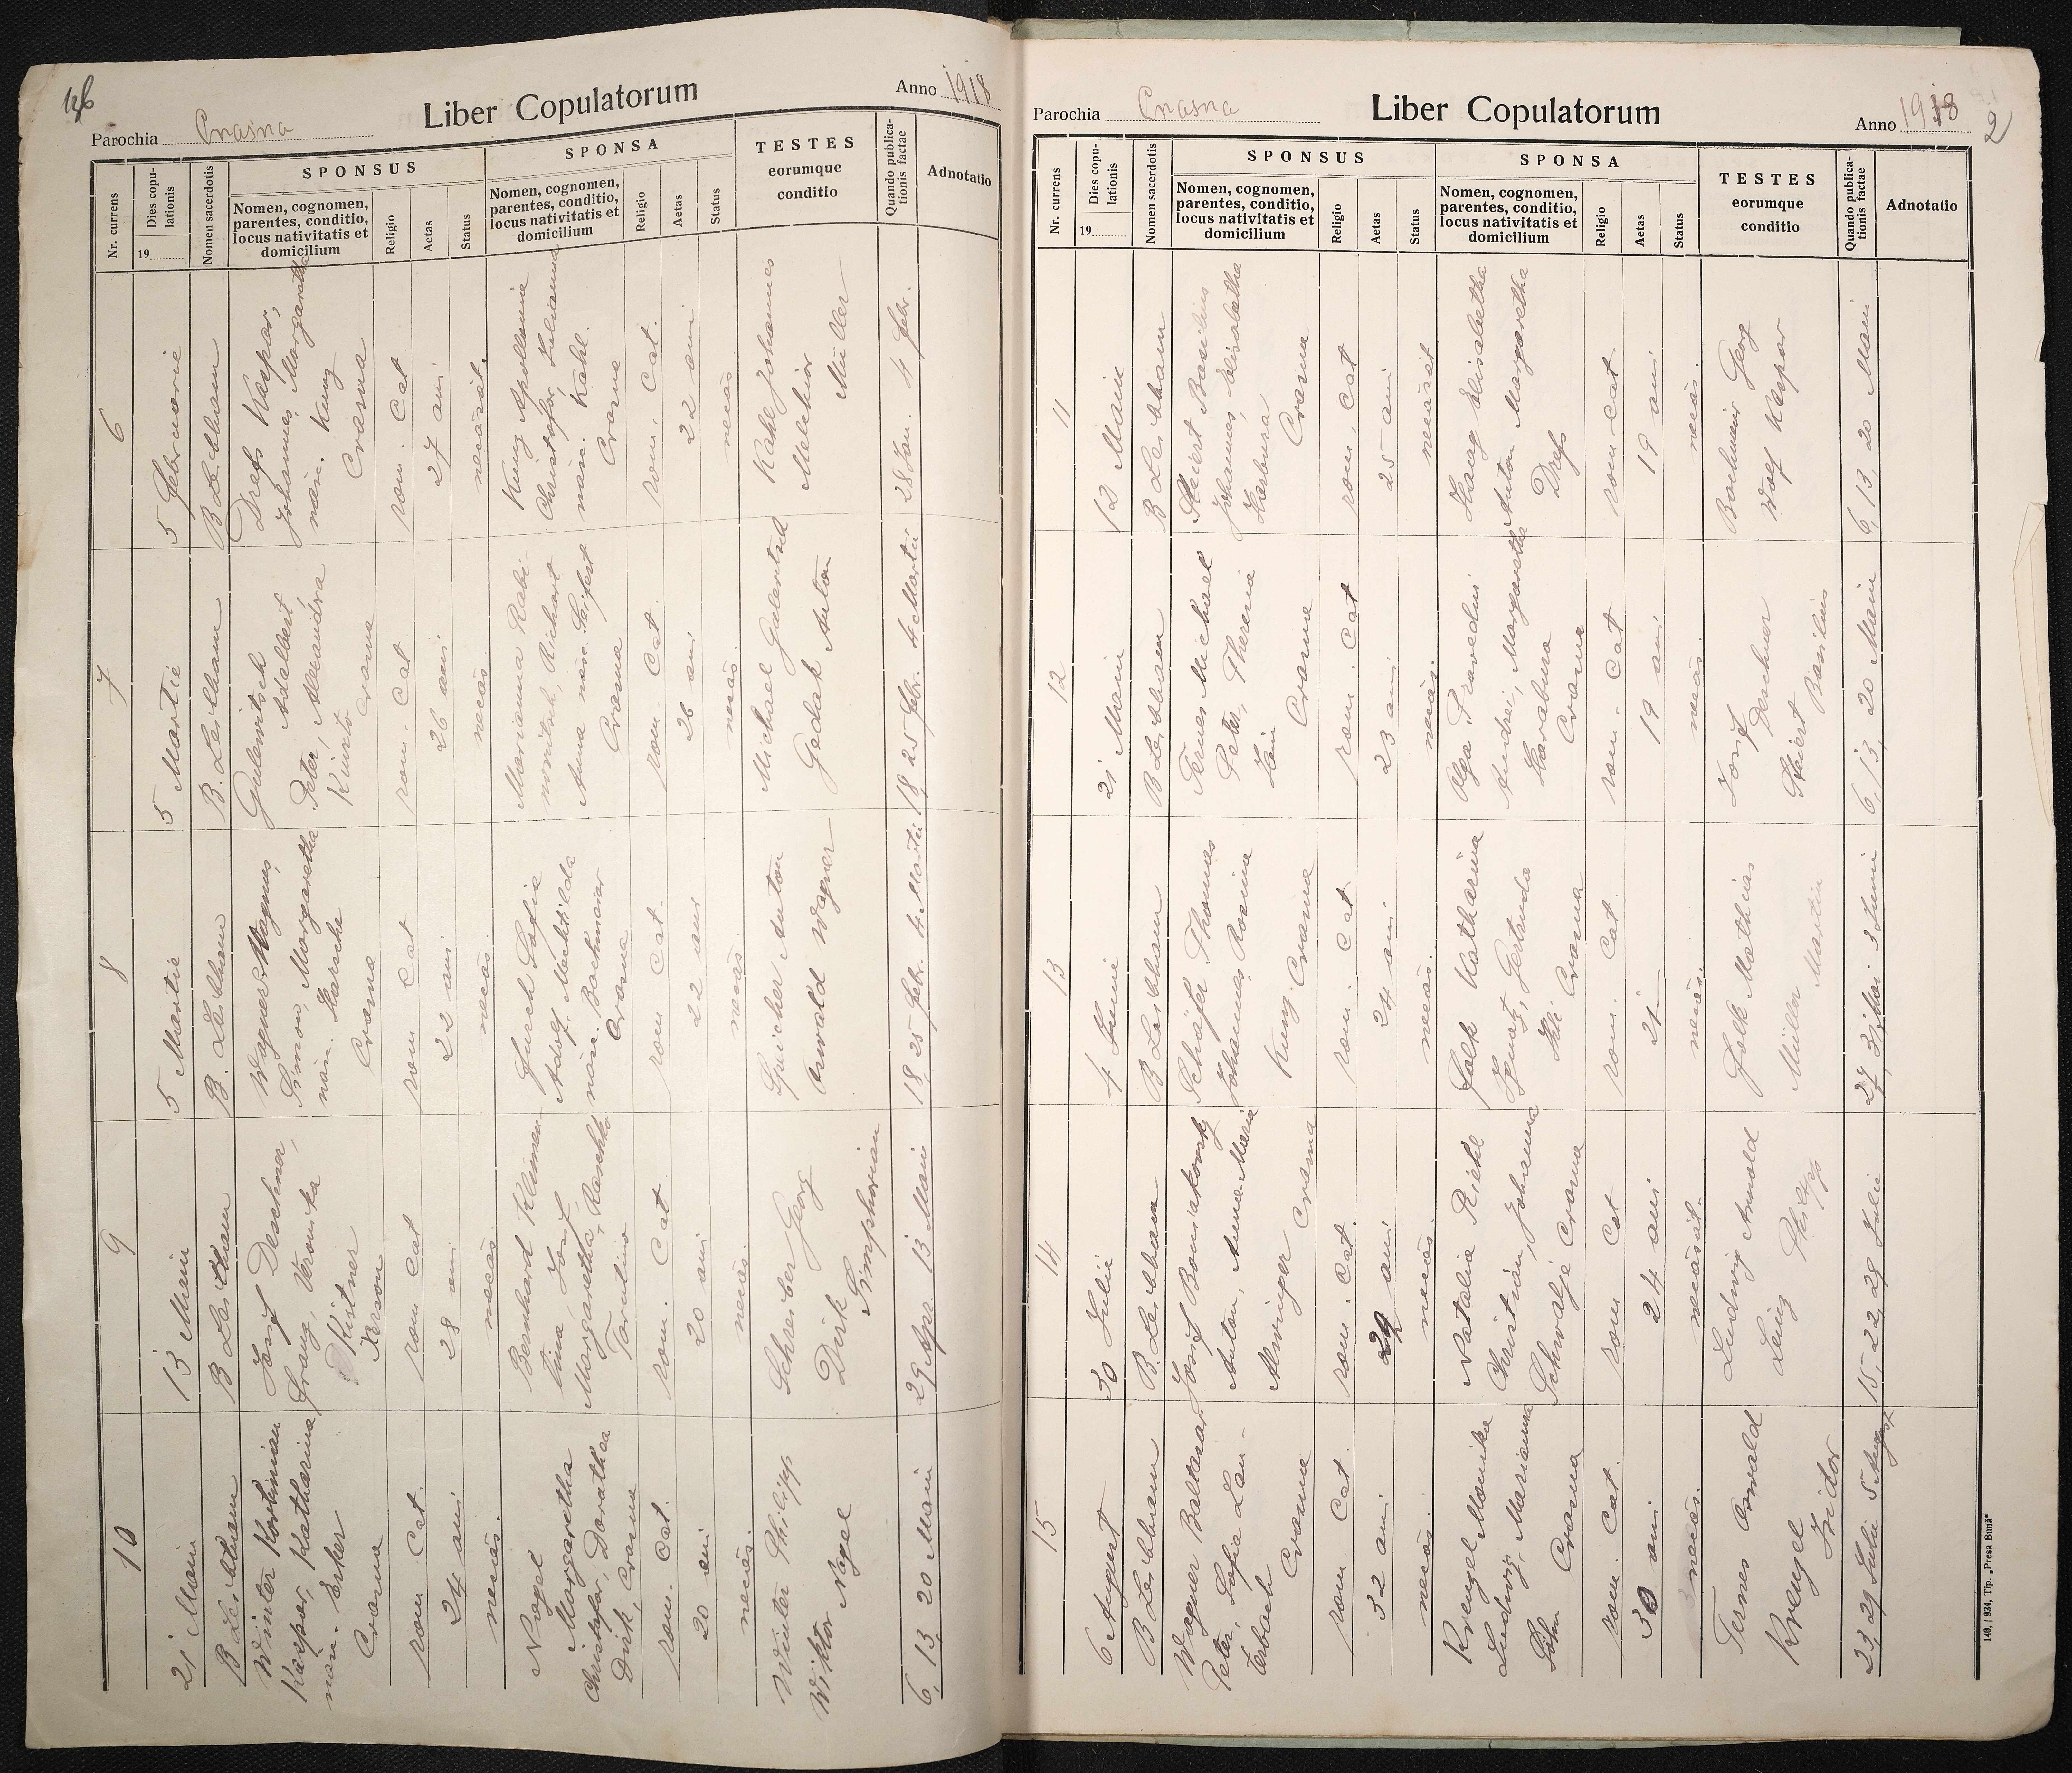 Liber Copulatorum
Parochia Crasna
Anno 1918
Nr. currens
Dies copu-
lationis
19
Nomen sacerdotis
SPONSUS
Nomen, cognomen,
parentes, conditio,
locus nativitatis et
domicilium
Religio
Aetas
Status
SPONSA
Nomen, cognomen,
parentes, conditio,
locus nativitatis et
domicilium
Religio
Aetas
Status
TESTES
eorumque
conditio
Quando publica-
tionis factae
Adnotatio
6
5 Februarie
B Leibham
Drefs Kaspar,
Johannes, Margaretha
născ. Kung
Crasna
rom. Cat
27 ani
necăsăt.
Kung Apollonia
Christofor, Julianna
născ. Kahl.
Crasna
rom. Cat.
22 ani
necăs
Kahl Johannes
Melchior
Müller
28 Jan. 4 Febr.
7
5 Martie
B. Leibham
Gulewitsch
Adalbert
Peter, Alexandra
Kuntz
Crasna
rom. Cat
26 ani
necăs.
Marianna Rabi-
nowitsch, Richart
Anna născ. Seifert
Crasna
rom. Cat
26 ani
necăs.
Michael Galentsch
Gedak Anton
18, 25 Febr. 4 Martie
8
5 Martie
B. Leibham
Wagner Magnus,
Simon, Margaretha
născ. Harsche
Crasna
rom Cat
22 ani
necăs.
Furch Sofie
Adolf, Mechtilda
născ. Bachmaier
Crasna
rom Cat.
22 ani
necăs.
Speicher Anton
Oswald Wagner
18, 25 Febr. 4 Martie
9
13 Maiu
B Leibham
Josif Deschner,
Franz, Veronika
Kistner
Kerson
rom Cat
28 ani
necăs.
Bernhard Klimen-
tina, Josif,
Margaretha, Raschko
Tarutino
rom. Cat
20 ani
necăs.
Schreiber Georg
Dirk
Simphorian
29 Apr. 13 Maiu
10
21 Maiu
B Leibham
Winter Korbinian
Kaspar, Katharina
născ. Erker
Crasna
rom. Cat.
24 ani
necăs.
Nagel
Margaretha
Christofor, Dorathea
Dirk, Crasna
rom. Cat.
20 ani
necăs.
Winter Philipp
Wiktor Nagel
6, 13, 20 Maiu
Liber Copulatorum
Parochia Crasna
Anno 1918
2
Nr. currens
Dies copu-
lationis
19
Nomen sacerdotis
SPONSUS
Nomen, cognomen,
parentes, conditio,
locus nativitatis et
domicilium
Religio
Aetas
Status
SPONSA
Nomen, cognomen,
parentes, conditio,
locus nativitatis et
domicilium
Religio
Aetas
Status
TESTES
eorumque
conditio
Quando publica-
tionis factae
Adnotatio
11
12 Maiu
B Leibham
Steiert Basilius
Johannes, Elisabetha
Harbura
Crasna
rom. Cat
25 ani
necăsăt
Haag Elisabetha
Anton Margaretha
Drefs
rom Cat
19 ani
necăs.
Bachmeir Georg
Wolf Kaspar
6, 13, 20 Maiu
12
21 Maiu
B Leibham
Ternes Michael
Peter, Theresia
Hein
Crasna
rom. Cat
23 ani
necăs.
Olga Pravedni
Andrei, Margaretha
Harabura
Crasna
rom. Cat
19 ani
necăs.
Josif
Deschner
Steiert Basilius
6, 13, 20 Maiu
13
4 Junie
B Leibham
Schäfer Thomas
Johannes, Rosina
Kung. Crasna
rom. Cat
24 ani
necăs.
Folk Katharina
Ignatz, Gertruda
Crasna
rom. Cat.
21
necăs.
Folk Mathias
Müller Martin
3 Junie
14
30 Julie
B. Leibham
Josif Boniakowsky
Anton, Anna-Maria
Alwinger Crasna
rom. Cat.
29 ani
necăs.
Natalia Riehl
Christian, Johanna
Schwalje Crasna
rom Cat
24 ani
necăsăt.
Ludwig Arnold
Leing Philipp
15, 22, 29 Julie
15
6 August
B Leibham
Wagner Baltasar
Peter, Sofia Lau-
terbach
Crasna
rom Cat.
32 ani
necăs.
Krengel Monika
Ludwig, Marianna
Böhm Crasna
rom. Cat.
30 ani
necăs.
Ternes Oswald
Krengel
Isidor
23, 29 Julie 5 August
140, 1934, Tip. „Presa Bună“